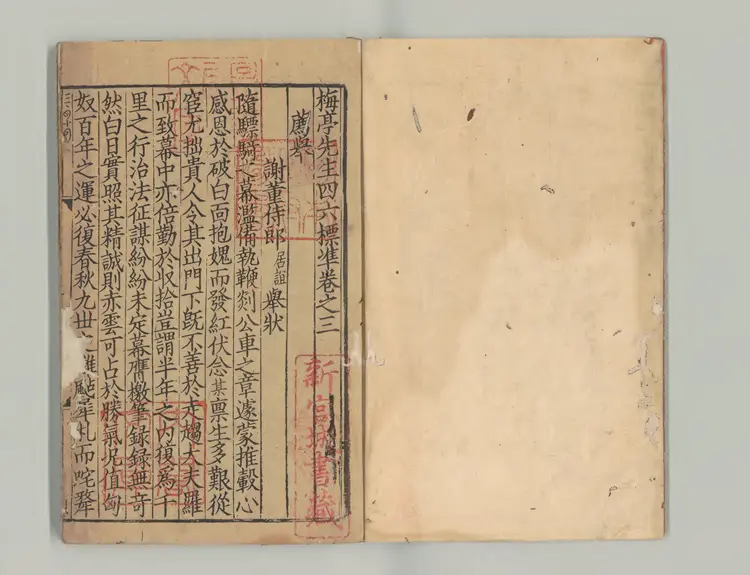 梅亭先生四六標準卷之三
薦舉
謝董侍郎居誼舉狀
隨驃騎之幕濫備執鞭剡公車之章遽蒙推轂心
感恩於破白面抱媿而發紅伏念某禀生多艱從
宦尤拙貴人令其出門下旣不善於走趨大夫羅
而致幕中亦倍勤於收拾豈謂半年之內復爲千
里之行治法征謀紛紛未定幕鴈檄筆録録無奇
然白日實照其精誠則赤雲可占於勝氣況值匈
奴百年之運必復春秋九世之 犀札而咤犛
新宮城書藏